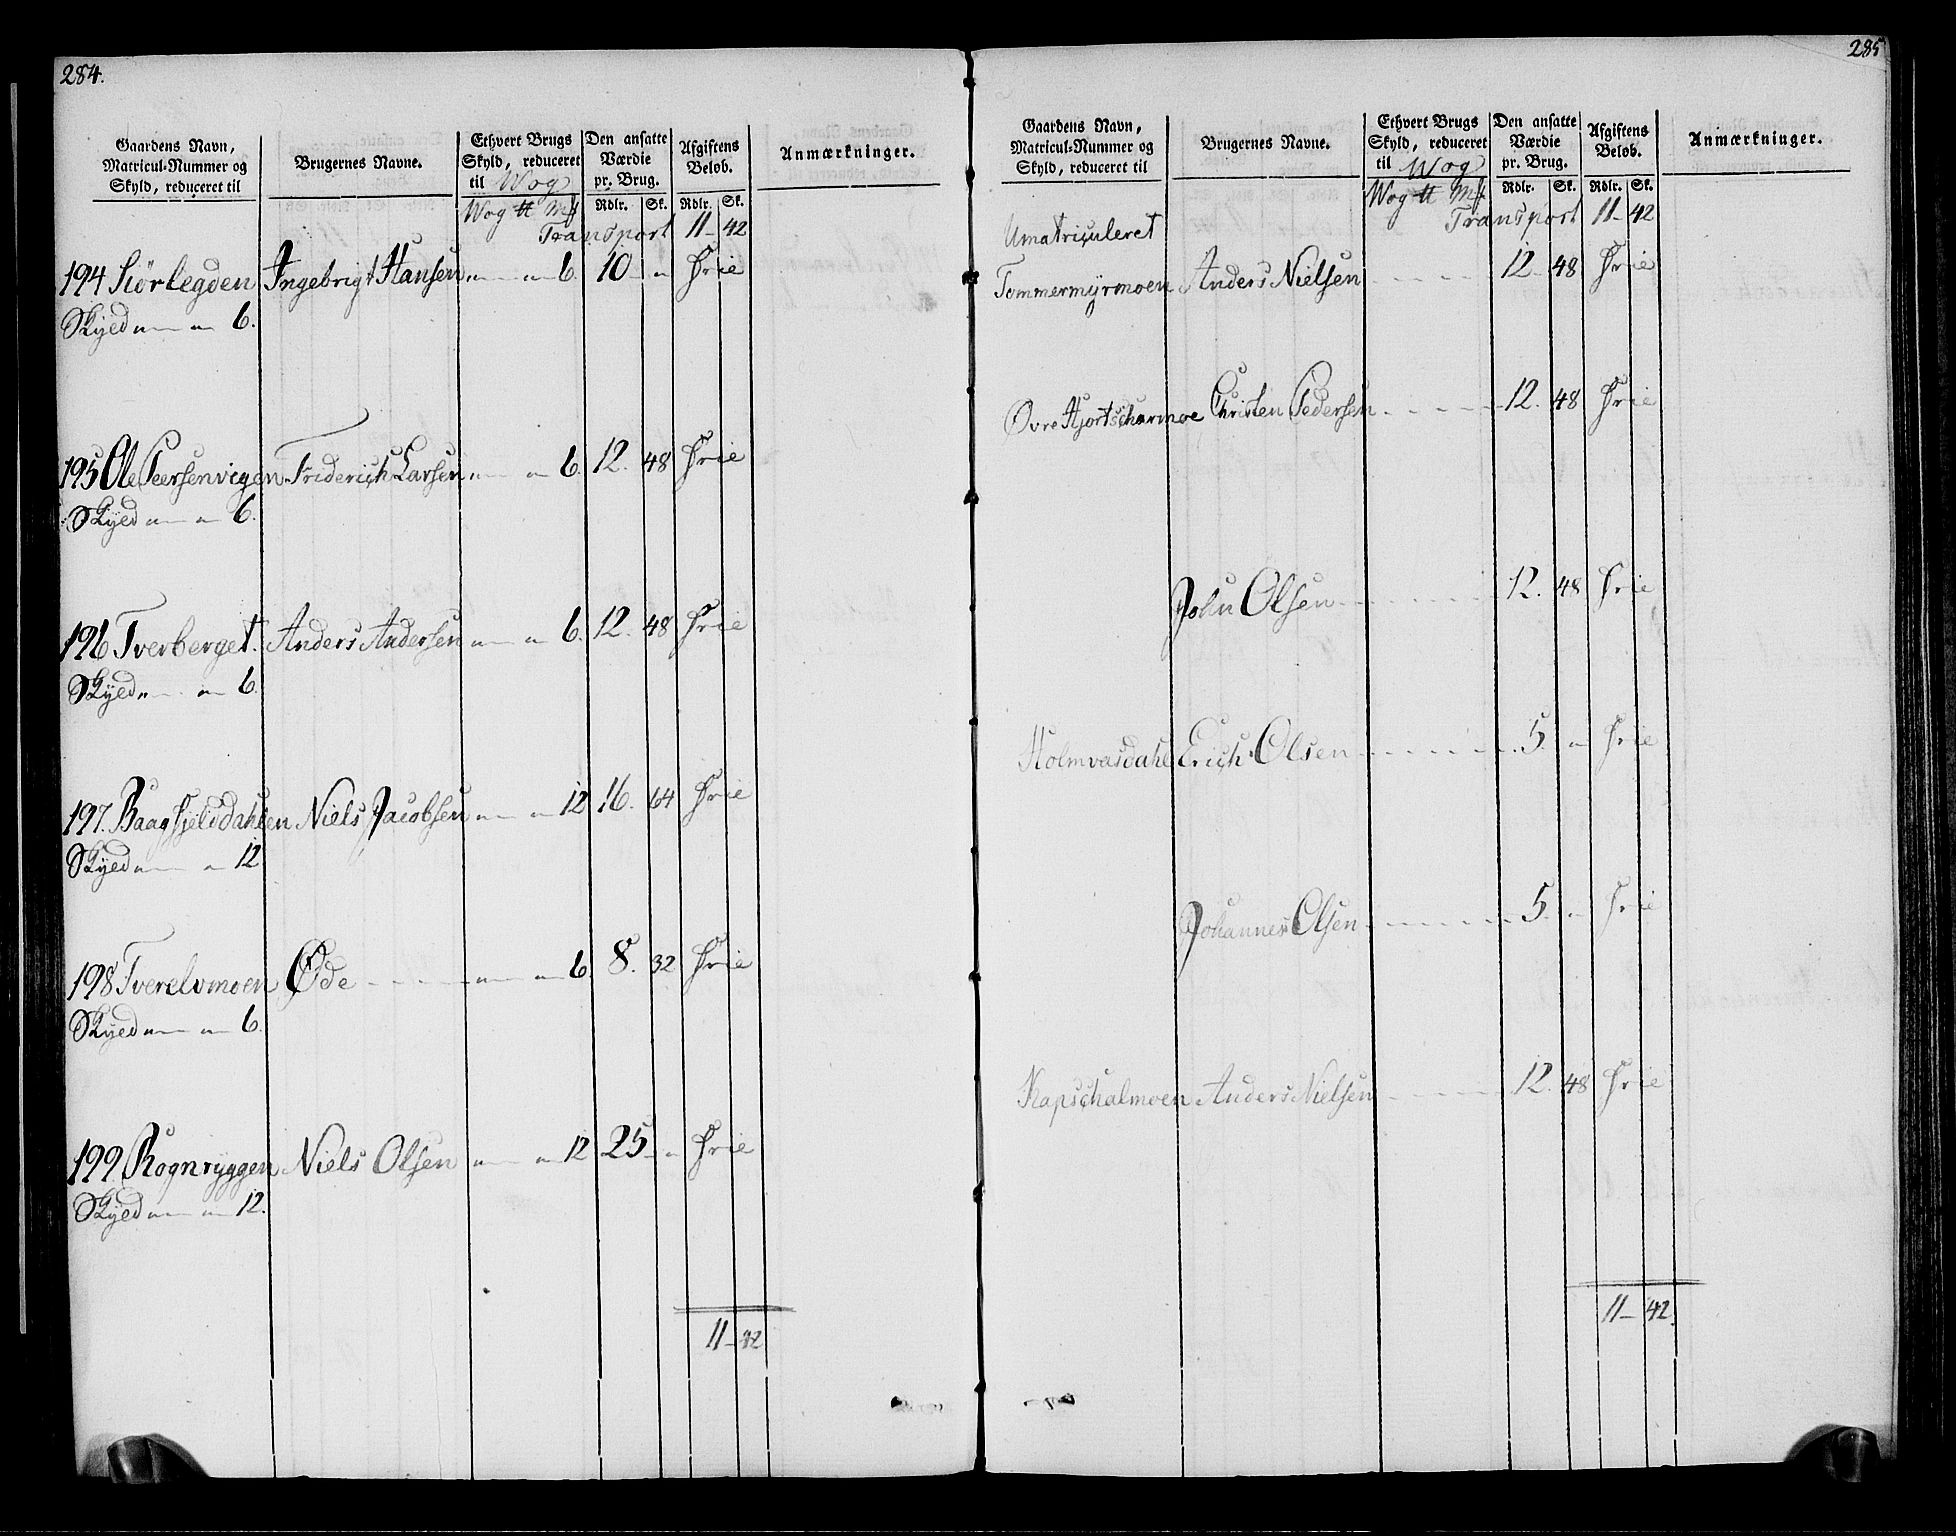 284.
Gaardens Navn, Matricul-Nummer og Skyld, reduceret til
Brugernes Navne.
Ethvert Brugs Skyld, reduceret til Wog
Den ansatte Værdie pr. Brug.
Afgiftens Beløb.
Anmærkninger.
Wog ℔ Mk Rdlr. Sk. Rdlr. Sk.
Transport 11 - 42
194 Siörlegden Ingebrigt Hansen „ — „ 6. 10 - „ Frie
Skyed „ — „ 6.
195 Ole Peersenvigen Friderich Larsen „ — „ 6. 12. 48 Frie
Skyed „ — „ 6.
196 Tverberget. Anders Andersen „ — „ 6. 12. 48 Frie
Skyed „ — „ 6.
197. Baagfjelddahlen Niels Jacobsen „ — „ 12 16. 64 Frie
Skyed „ — „ 12
198 Tverelvmoen Øde - - - - „ — „ 6. 8. 32 Frie
Skyed „ — „ 6.
199. Rognryggen Niels Olsen „ — „ 12 25 - „ Frie
Skyed „ — „ 12.
11 - 42
285
Gaardens Navn, Matricul-Nummer og Skyld, reduceret til
Brugernes Navne.
Ethvert Brugs Skyld, reduceret til Wog
Den ansatte Værdie pr. Brug.
Afgiftens Beløb.
Anmærkninger.
Wog ℔ Mk Rdlr. Sk. Rdlr. Sk.
Transport 11 - 42
Umatriculeret
Tommermyrmoen Anders Nielsen - - - - 12 - 48 Frie
Øvre Hjortscharmoe Christen Pedersen - - - - 12. 48 Frie
John Olsen - - - - 12. 48 Frie
Holmvasdahl Erich Olsen - - - - 5. „ Frie
Johannes Olsen - - - - 5 - „ Frie
Kapschalmoen Anders Nielsen - - - - 12. 48 Frie
11 - 42.